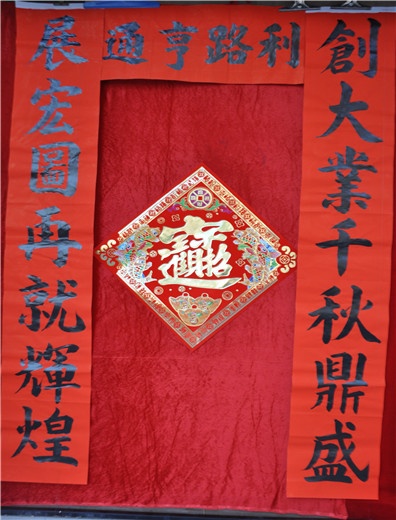 利路亨通
創大業千秋鼎盛
展宏圖再就輝煌
招財進寶